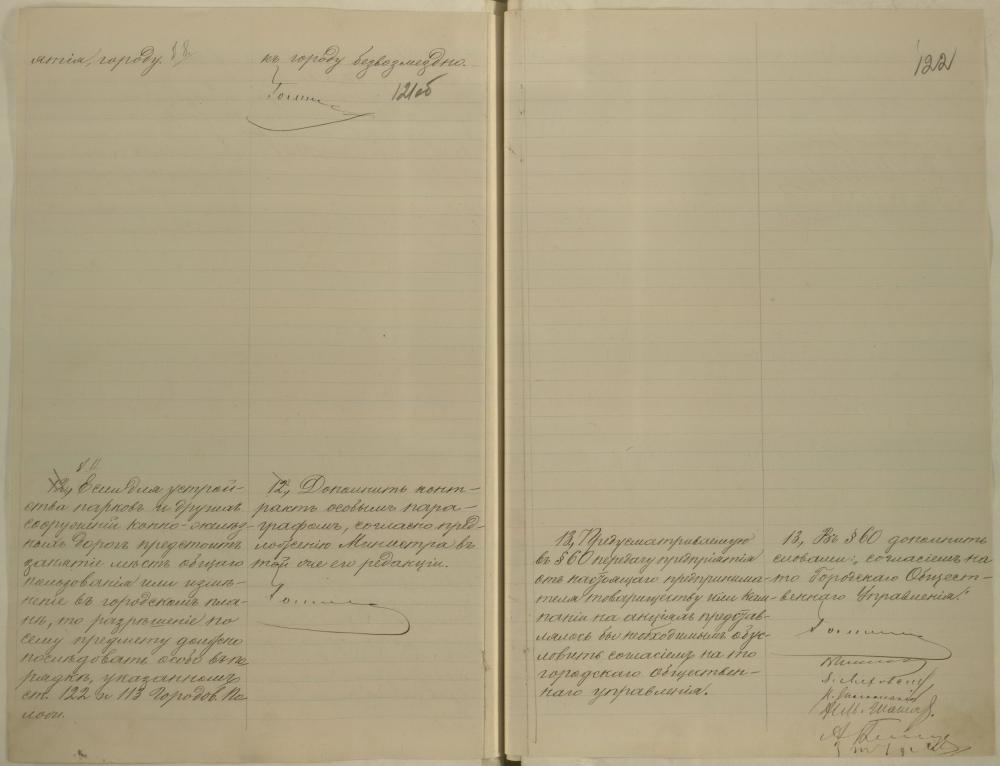 ятія, городу.
къ городу безвозмездно.
121об
122
12, Если для устрой-
ства парковъ и другихъ
сооруженій конно-желѣз-
ныхъ дорогъ предстоитъ
занятіе мѣстъ общаго
пользованія или измѣ-
неніе въ городскомъ пла-
нѣ, то разрѣшеніе по
сему предмету должно
послѣдовать особо въ по-
рядкѣ, указанномъ
ст. 122 и 113 Городов. По-
лож.
12, Дополнить конт-
рактъ особымъ пара-
графомъ, согласно пред-
ложенію Министра въ
той же его редакціи.
13, Предусматриваемую
въ § 60 передачу предпріятія
отъ настоящаго предпринима-
теля товариществу или ком-
паніи на акціяхъ представ-
лялось бы необходимымъ обус-
ловить согласіемъ на то
городскаго обществен-
наго управленія.
13, Въ § 60 дополнить
словами: „согласіемъ на
то Городскаго Общест-
веннаго Управленія."